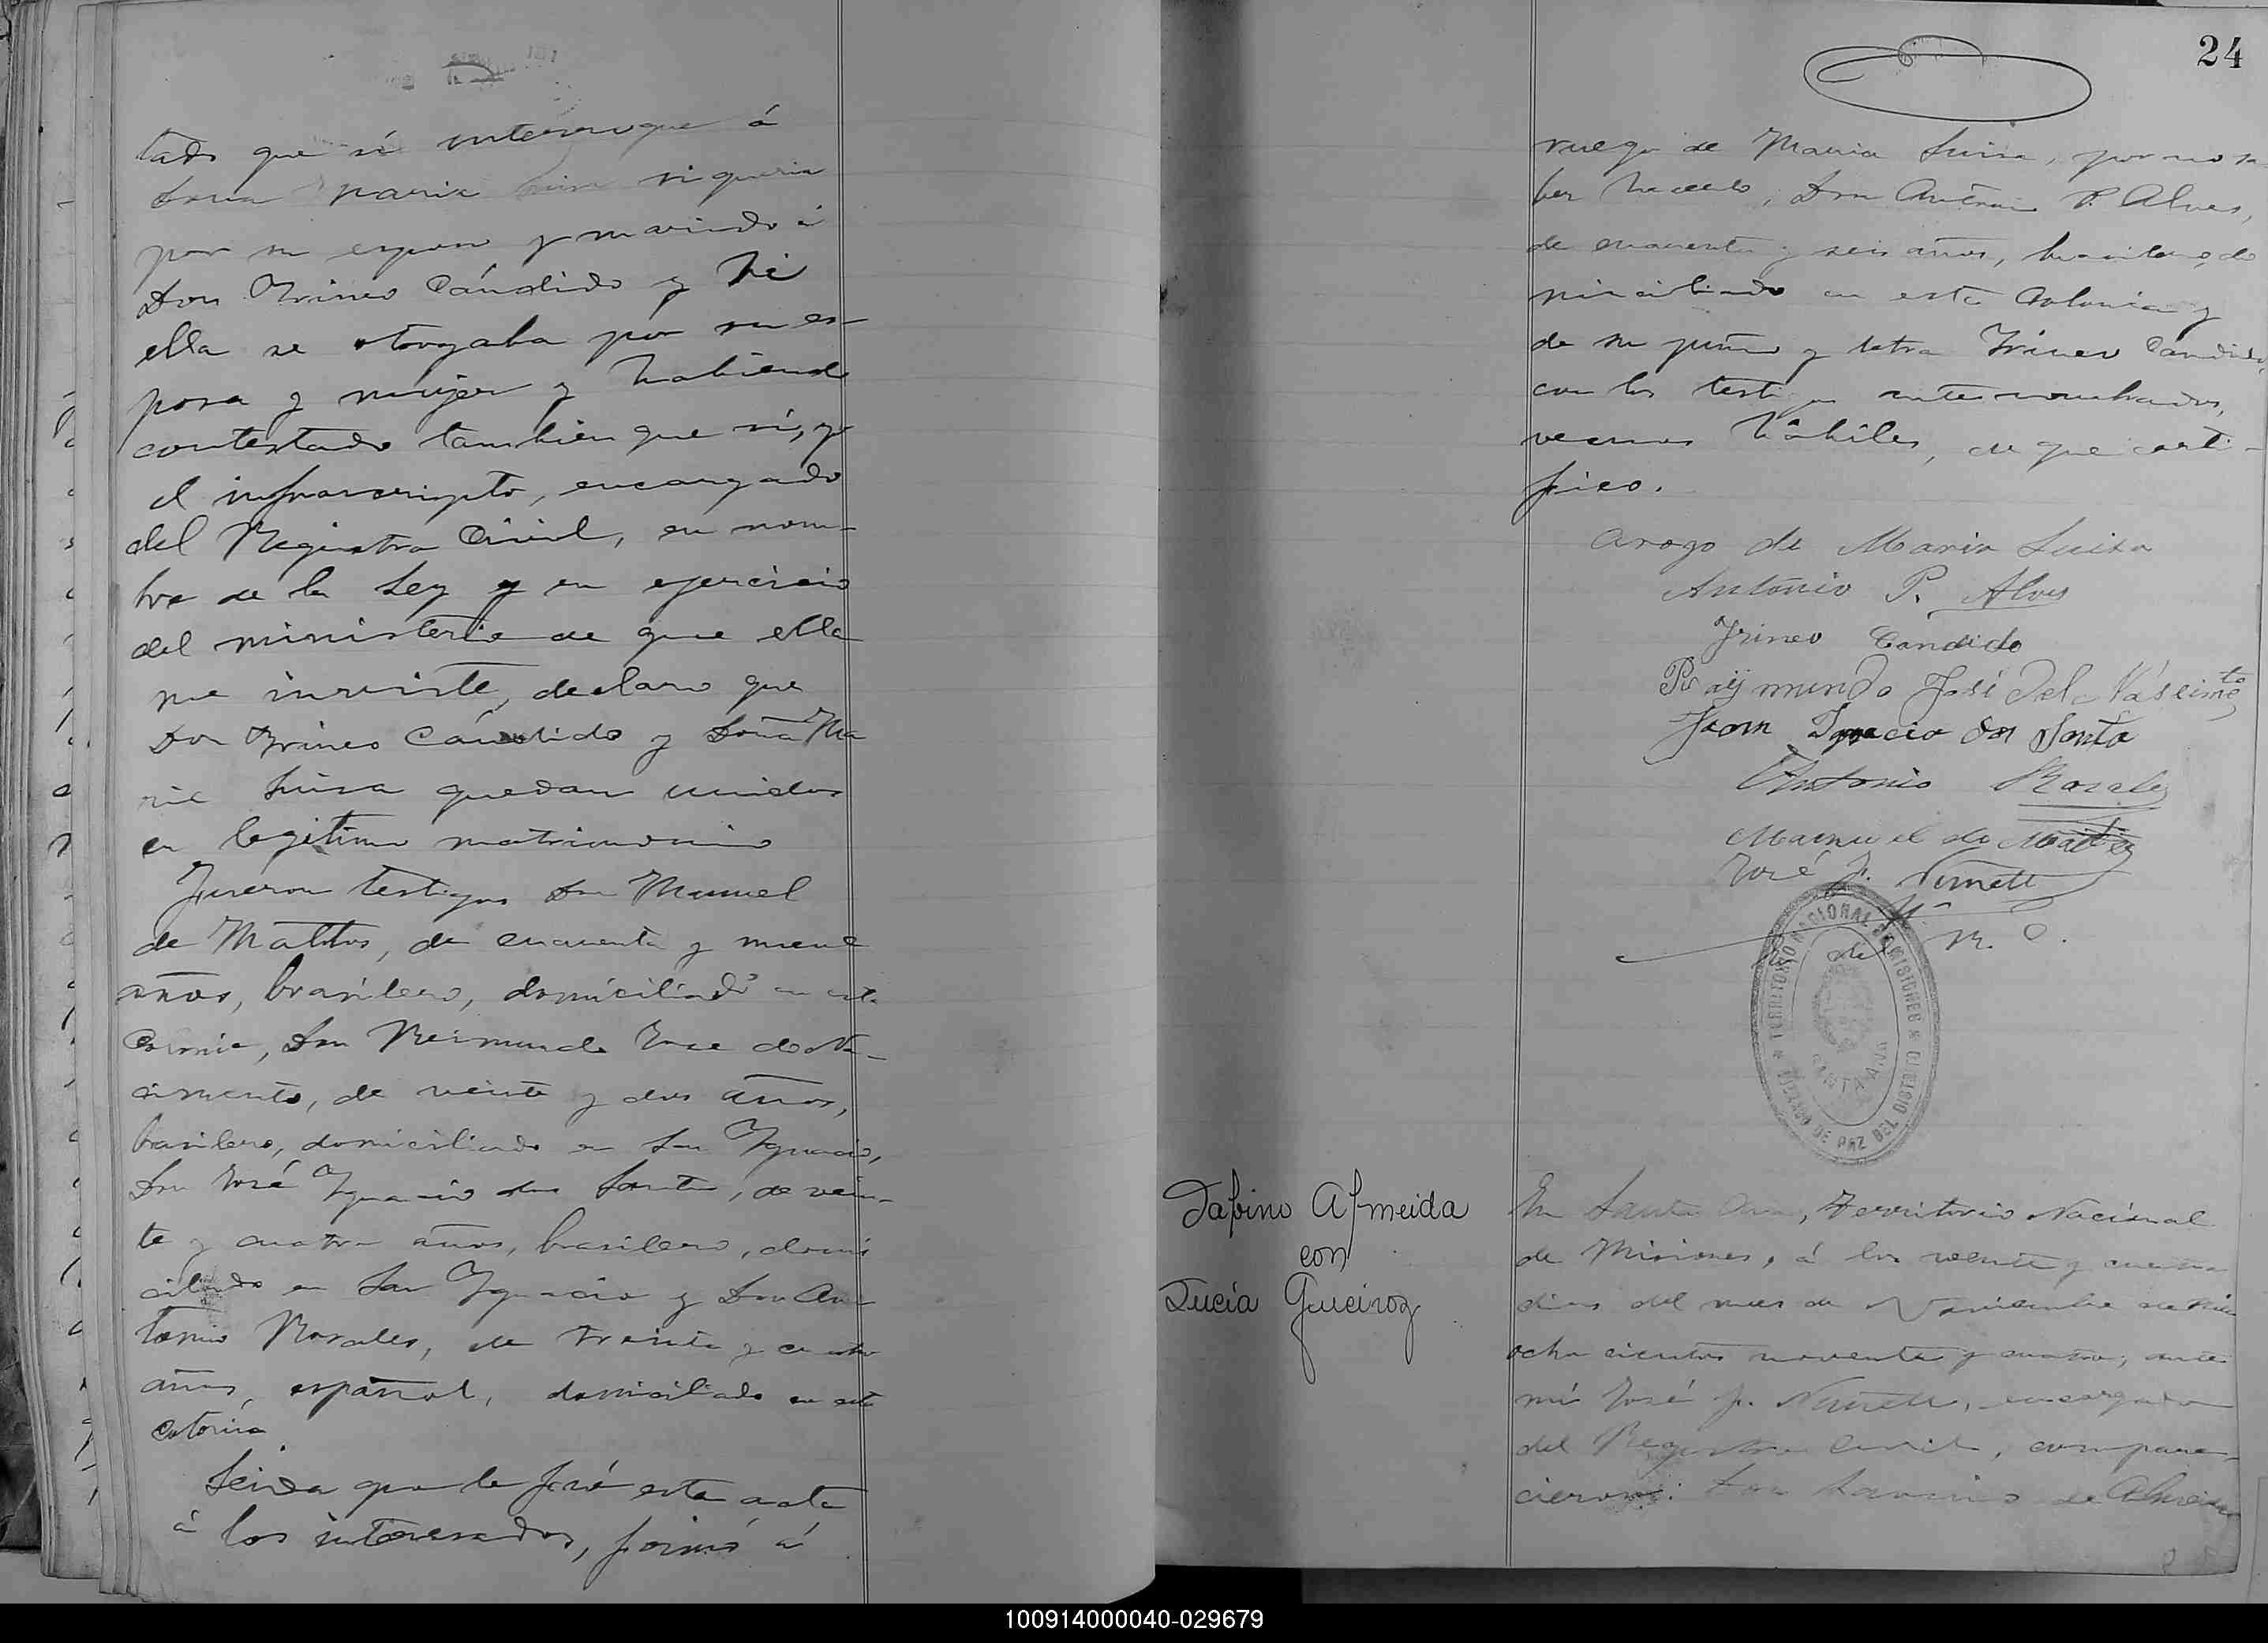 tado que sí interrogue á
Doña Maria Luisa si queria
por su esposo y marido á
Don Irineo Cándido y si
ella se otorgaba por su es-
posa y mujer y habiendo
contestado tambien que sí, yo
el infrascripto, encargado
del Registro Civil, en nom-
bre de la Ley y en ejercicio
del ministerio de que ella
me inviste, declaro que
Don Irineo Cándido y Doña Ma
ria Luisa quedan unidos
en legitimo matrimonio
Fueron testigos Don Manuel
de Mattos, de cuarenta y nueve
años, brasilero, domiciliado en esta
Colonia, Don Reimundo José do Na-
cimento, de veinte y dos años,
brasilero, domiciliado en San Ignacio,
Don José Ignacio dos Santos, de vein-
te y cuatro años, brasilero, domi
ciliado en San Ignacio y Don An
tonio Rosales, de treinta y cuatro
años, español, domiciliado en esta
Colonia
Leida que le fué esta acta
á los interesados, firmó á
24
ruego de Maria Luisa, por no sa
ber hacerlo, Don Antonio P. Alves,
de cuarenta y seis años, brasilero, do
miciliado en esta Colonia y
de su puño y letra Irineo Candido,
con los testigos antes nombrados,
vecinos hábiles, de que certi-
fico.
Arogo de Maria Luisa
Antonio P. Alves
Irineo Cándido
Raymundo José Del Náscimto
Joan Ignacio dos Santo
Antonio Rosales
Manuel de Mattos
José J.
TERRITORIO NACIONAL DE MISIONES
SANTA ANA
JUZGADO DE PAZ DEL DISTRITO
Sabino Almeida
con
Lucía Queiroz
En Santa Ana, Territorio Nacional
de Misiones, á los veinte y cuatro
dias del mes de Noviembre de mil
ocho cientos noventa y cuatro, ante
mi José J. encargado
del Registro Civil, compare-
cieron: Don Savino de Almeida